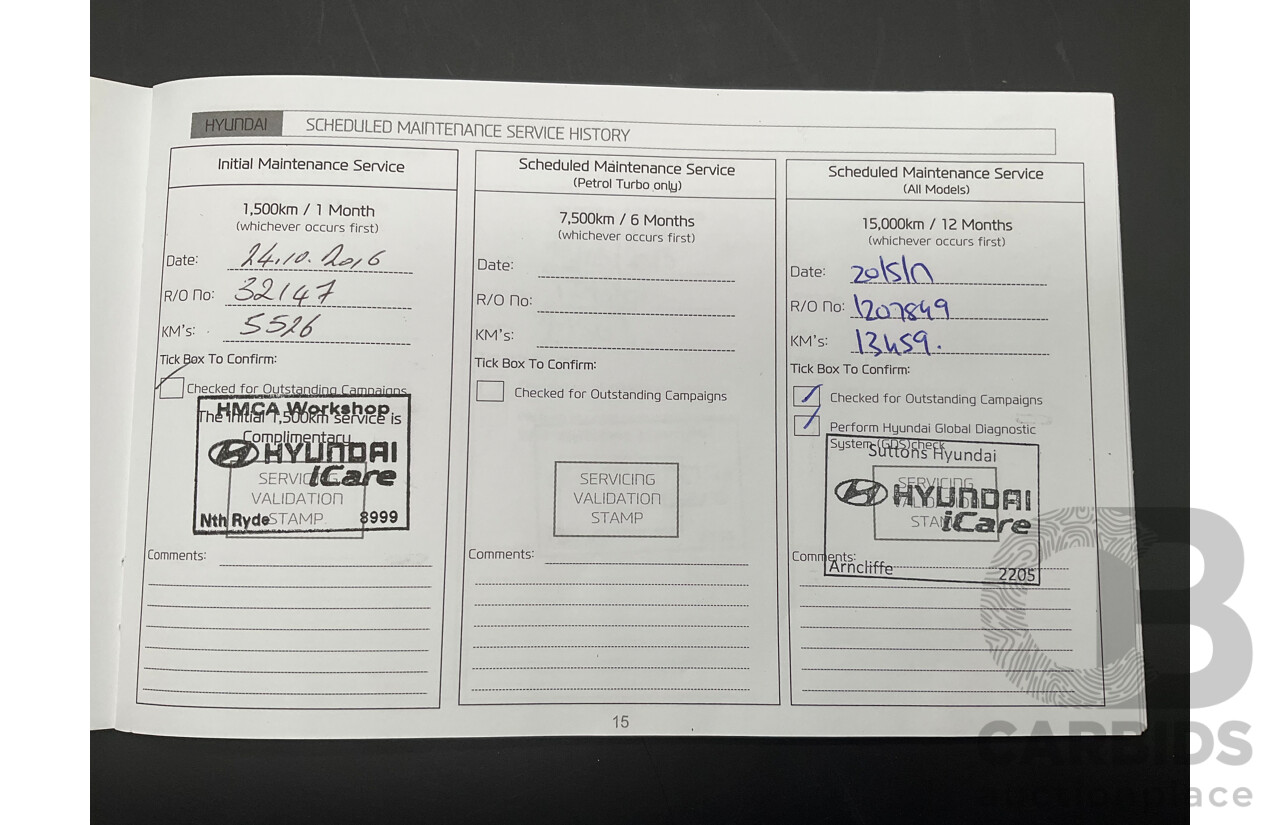 HYUNDAI SCHEDULED MAINTENANCE SERVICE HISTORY
Initial Maintenance Service
1,500km / 1 Month
(whichever occurs first)
Date: 24.10.2016
R/O No: 32147
KM's: 5526
Tick Box To Confirm:
Checked for Outstanding Campaigns
The Initial 1,500km service is
Complimentary
HMCA Workshop
HYUNDAI
iCare
Nth Ryde 8999
SERVICING
VALIDATION
STAMP
Comments:
Scheduled Maintenance Service
(Petrol Turbo only)
7,500km / 6 Months
(whichever occurs first)
Date:
R/O No:
KM's:
Tick Box To Confirm:
Checked for Outstanding Campaigns
SERVICING
VALIDATION
STAMP
Comments:
Scheduled Maintenance Service
(All Models)
15,000km / 12 Months
(whichever occurs first)
Date: 20/5/17
R/O No: 1207849
KM's: 13459.
Tick Box To Confirm:
Checked for Outstanding Campaigns
Perform Hyundai Global Diagnostic
System (GDS)check
Suttons Hyundai
HYUNDAI
iCare
Arncliffe 2205
SERVICING
VALIDATION
STAMP
Comments:
15
CB
CARBIDS
auctionplace